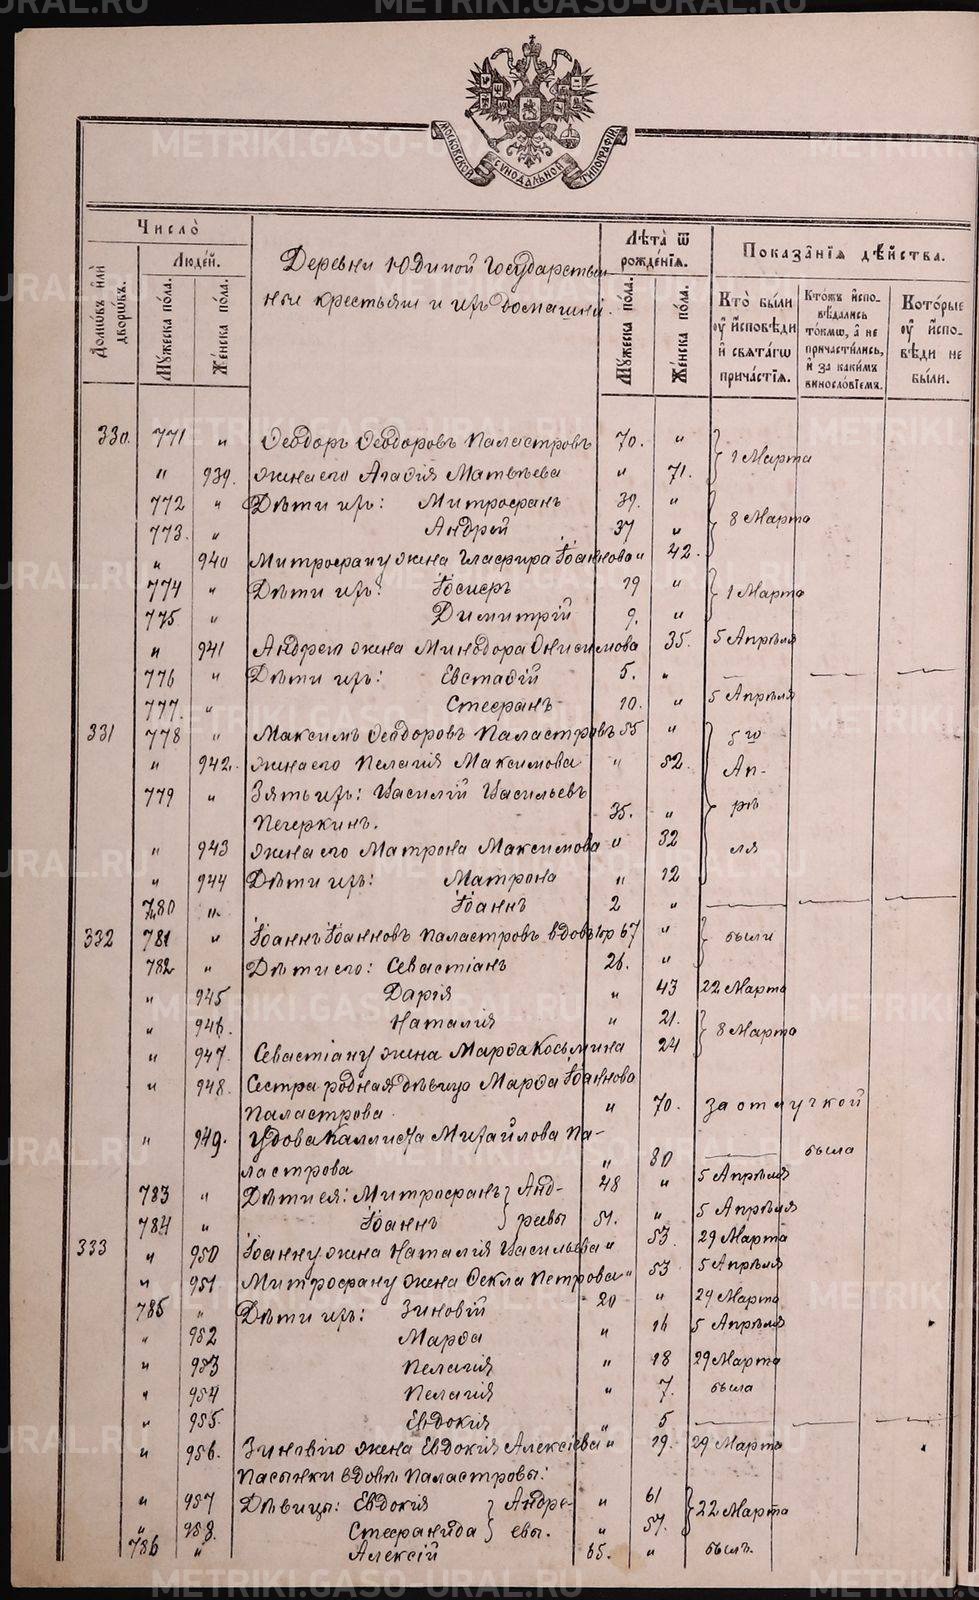 METRIKI.GASO-URAL.RU
МОСКОВСКОЙ СѴНОДАЛЬНОЙ ТИПОГРАФІИ
Число̀
Людей.
Домѡвъ илѝ дворѡвъ.
Мꙋжеска по́ла.
Же́нска по́ла.
Деревни Юдиной Государствен-
ные крестьяне и ихъ домашніи.
Лѣ́та ѿ рожде́нїѧ.
Мꙋжеска по́ла.
Же́нска по́ла.
Показанїѧ дѣйства.
Кто̀ бы́ли оу҆ и҆сповѣди и҆ свѧта́гѡ прича́стїѧ.
Кто́жъ и҆спо-вѣдались то́кмѡ, а҆ не причасти́лись, и҆ за каки́мъ винослові́емъ.
Кото́рые оу҆ и҆спо-вѣди не бы́ли.
330. 771 " Ѳеодоръ Ѳеодоровъ Паластровъ 70. " 1 Марта
" 939. жена его Агафія Матвѣева " 71.
772 " Дѣти ихъ: Митрофанъ 39. " 8 Марта
773. " Андрей 37 "
" 940 Митрофану жена Гласфира Іоаннова " 42.
774 " Дѣти ихъ: Іосифъ 19 " 1 Марта
775 " Димитрій 9. "
" 941 Андрею жена Минодора Онисимова 35. 5 Апрѣля
776 " Дѣти ихъ: Евстафій 5. "
777. " Стефанъ 10. " 5 Апрѣля
331 778 " Максимъ Ѳеодоровъ Паластровъ 55 " 5 го
" 942. жена его Пелагія Максимова " 52. Ап-
779 " Зять ихъ: Василій Васильевъ
Печеркинъ. 35. " рѣ
" 943 жена его Матрона Максимова " 32 ля
" 944 Дѣти ихъ: Матрона " 12
780 " Іоаннъ 2 "
332 781 " Іоаннъ Іоанновъ Паластровъ вдовъ 67 " были
782 " Дѣти его: Севастіанъ 26. "
" 945 Дарія " 43 22 Марта
" 946. Наталія " 21. 8 Марта
" 947. Севастіану жена Марфа Косьмина 24
" 948. Сестра родная дѣвица Марфа Іоаннова
Паластрова. " 70. за отлучкой
" 949. Вдова Каллиста Михайлова Па-
ластрова " 80 была
783 " Дѣти ея: Митрофанъ } Анд- 48 " 5 Апрѣля
784 " Іоаннъ } реевы 51. " 5 Апрѣля
333 " 950 Іоанну жена Наталія Васильева " 53. 29 Марта
" 951. Митрофану жена Ѳекла Петрова " 53 5 Апрѣля
785 " Дѣти ихъ: Зиновій 20 " 29 Марта
" 952 Марфа " 16 5 Апрѣля
" 953 Пелагія " 18 29 Марта
" 954 Пелагія " 7. была
" 955. Евдокія " 5
" 956. Зиновію жена Евдокія Алексіева " 19. 29 Марта
Пасынки вдовы Паластровы:
" 957 Дѣвицы: Евдокія } Андре- " 61 22 Марта
" 958. Стефанида } евы. " 57.
786 " Алексій 65. " былъ.